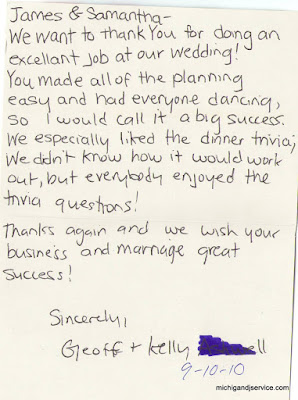 James & Samantha-
We want to thank You for doing an
excellant job at our wedding!
You made all of the planning
easy and had everyone dancing,
so I would call it a big success.
We especially liked the dinner trivia;
We didn't know how it would work
out, but everybody enjoyed the
trivia questions!
Thanks again and we wish your
business and marriage great
success!
Sincerely,
Geoff + Kelly
9-10-10
michigandjservice.com